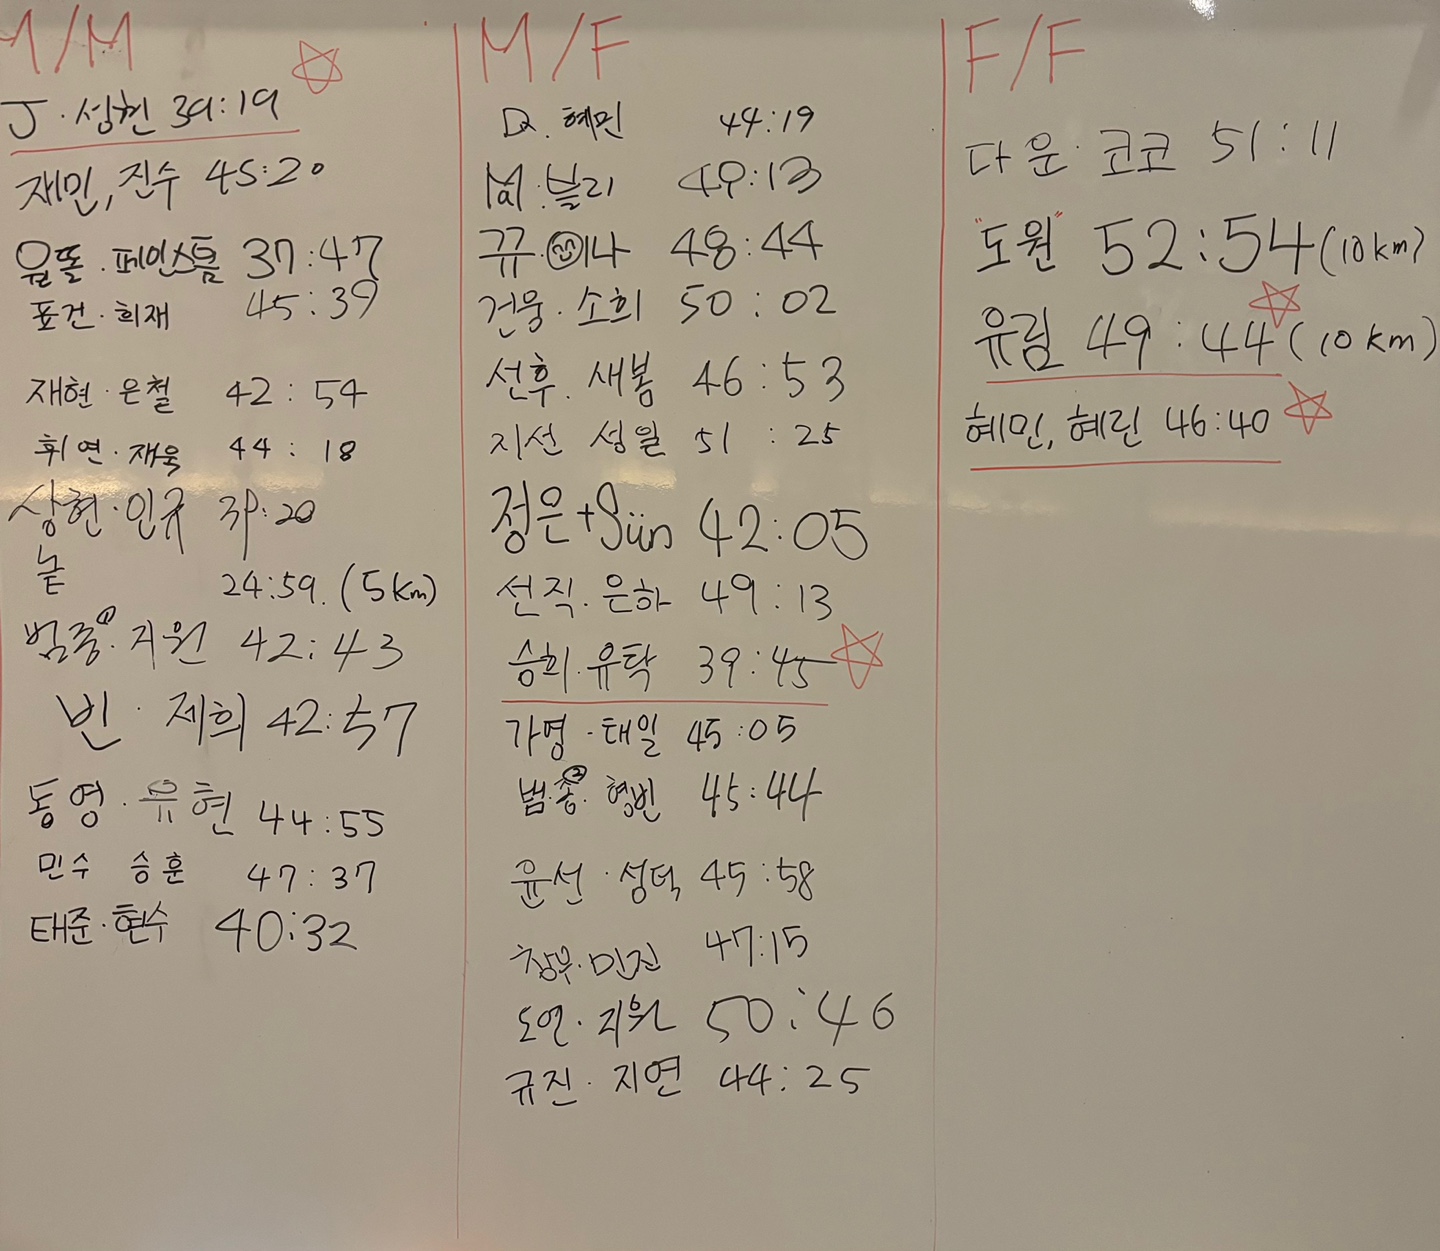 M/M
J·성현 39:19
재민, 진수 45:20
윤똘·페인스톰 37:47
표건·희재 45:39
재현·은철 42:54
휘연·재욱 44:18
상현·인규 39:20
눛 24:59. (5km)
범종①·지원 42:43
빈·제희 42:57
동영·유현 44:55
민수 승훈 47:37
태준·현수 40:32
M/F
D.혜민 44:19
블리 49:13
뀨·이나 48:44
건웅·소희 50:02
선후·새봄 46:53
지선 성일 51:25
정은+Sün 42:05
선직·은하 49:13
승희·유탁 39:45
가영·태일 45:05
범종②·형빈 45:44
윤선·성덕 45:58
창부·민진 47:15
도연·지원 50:46
규진·지연 44:25
F/F
다운·코코 51:11
"도원" 52:54 (10km)
유림 49:44 (10km)
혜민, 혜린 46:40